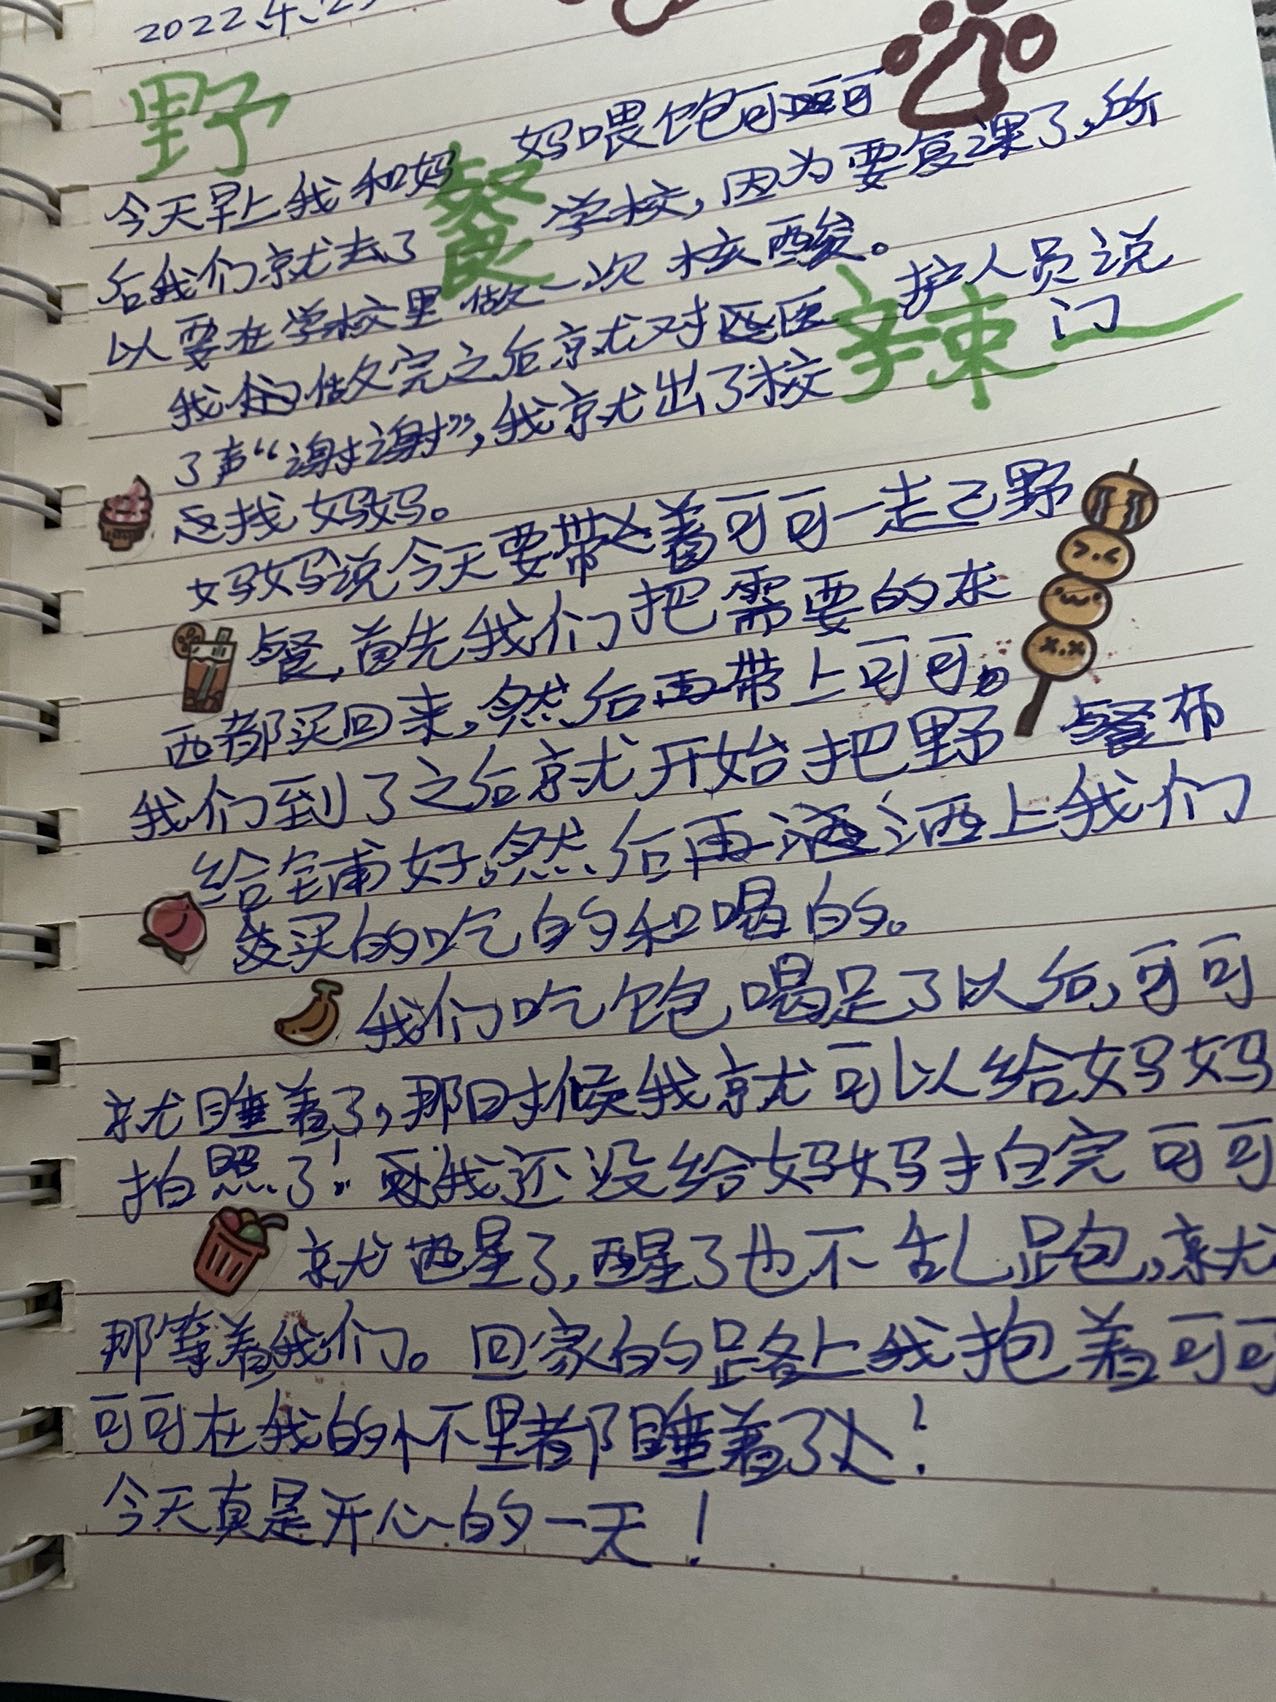 2022.4.2
野餐
辣
今天早上我和妈妈喂饱可可
后我们就去了学校,因为要复课了,所
以要在学校里做一次核酸。
我们做完之后就对医护人员说
了声“谢谢”,我就出了校门
去找妈妈。
妈妈说今天要带着可可一起去野
餐,首先我们把需要的东
西都买回来,然后再带上可可。
我们到了之后就开始把野餐布
给铺好,然后再洒上我们
买的吃的和喝的。
我们吃饱喝足了以后,可可
就睡着了,那时候我就可以给妈妈
拍照了!可我还没给妈妈拍完可可
就醒了,醒了也不乱跑,就
那等着我们。回家的路上我抱着可可
可可在我的怀里都睡着了!
今天真是开心的一天!